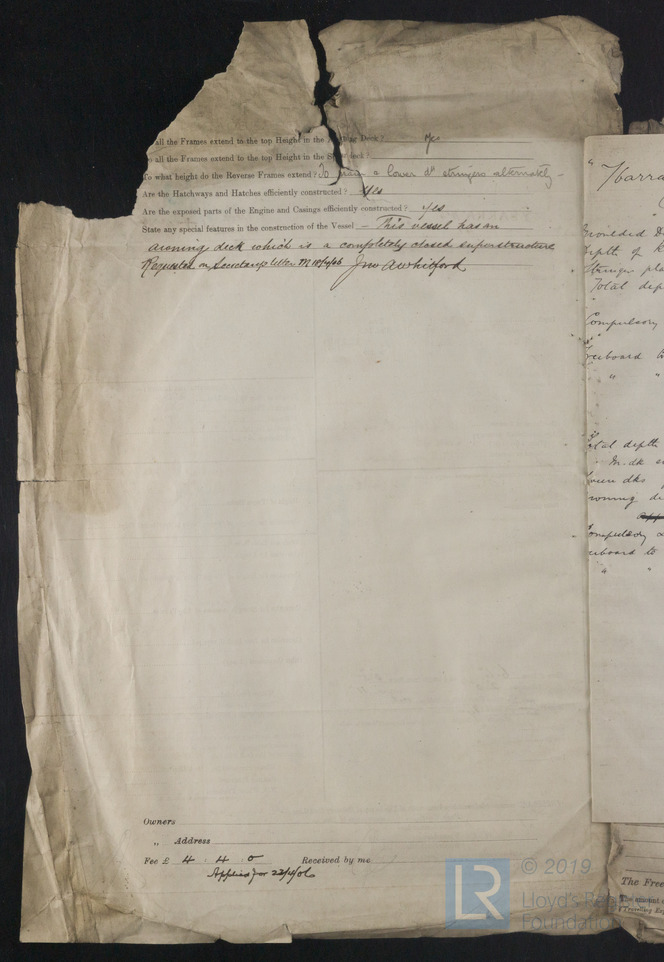 all the Frames extend to the top Height in the Deck? Yes
all the Frames extend to the top Height in the deck?
To what height do the Reverse Frames extend? To main & lower dk stringers alternately
Are the Hatchways and Hatches efficiently constructed? Yes
Are the exposed parts of the Engine and Casings efficiently constructed? Yes
State any special features in the construction of the Vessel – This vessel has an
awning deck which is a completely closed superstructure
Requested in Secretary's letter M
Owners
„ Address
Fee £ 4 . 4 . 0 Received by me
Applied for
"Harra
Moulded D
Depth of
Stringer pla
Total dep
Compulsory
Freeboard
" "
Total depth
M. dk
tween dks
awning de
Compulsory
freeboard to
" "
The Free
The amount
Travelling Ex
LR © 2019
Lloyd's Register
Foundation